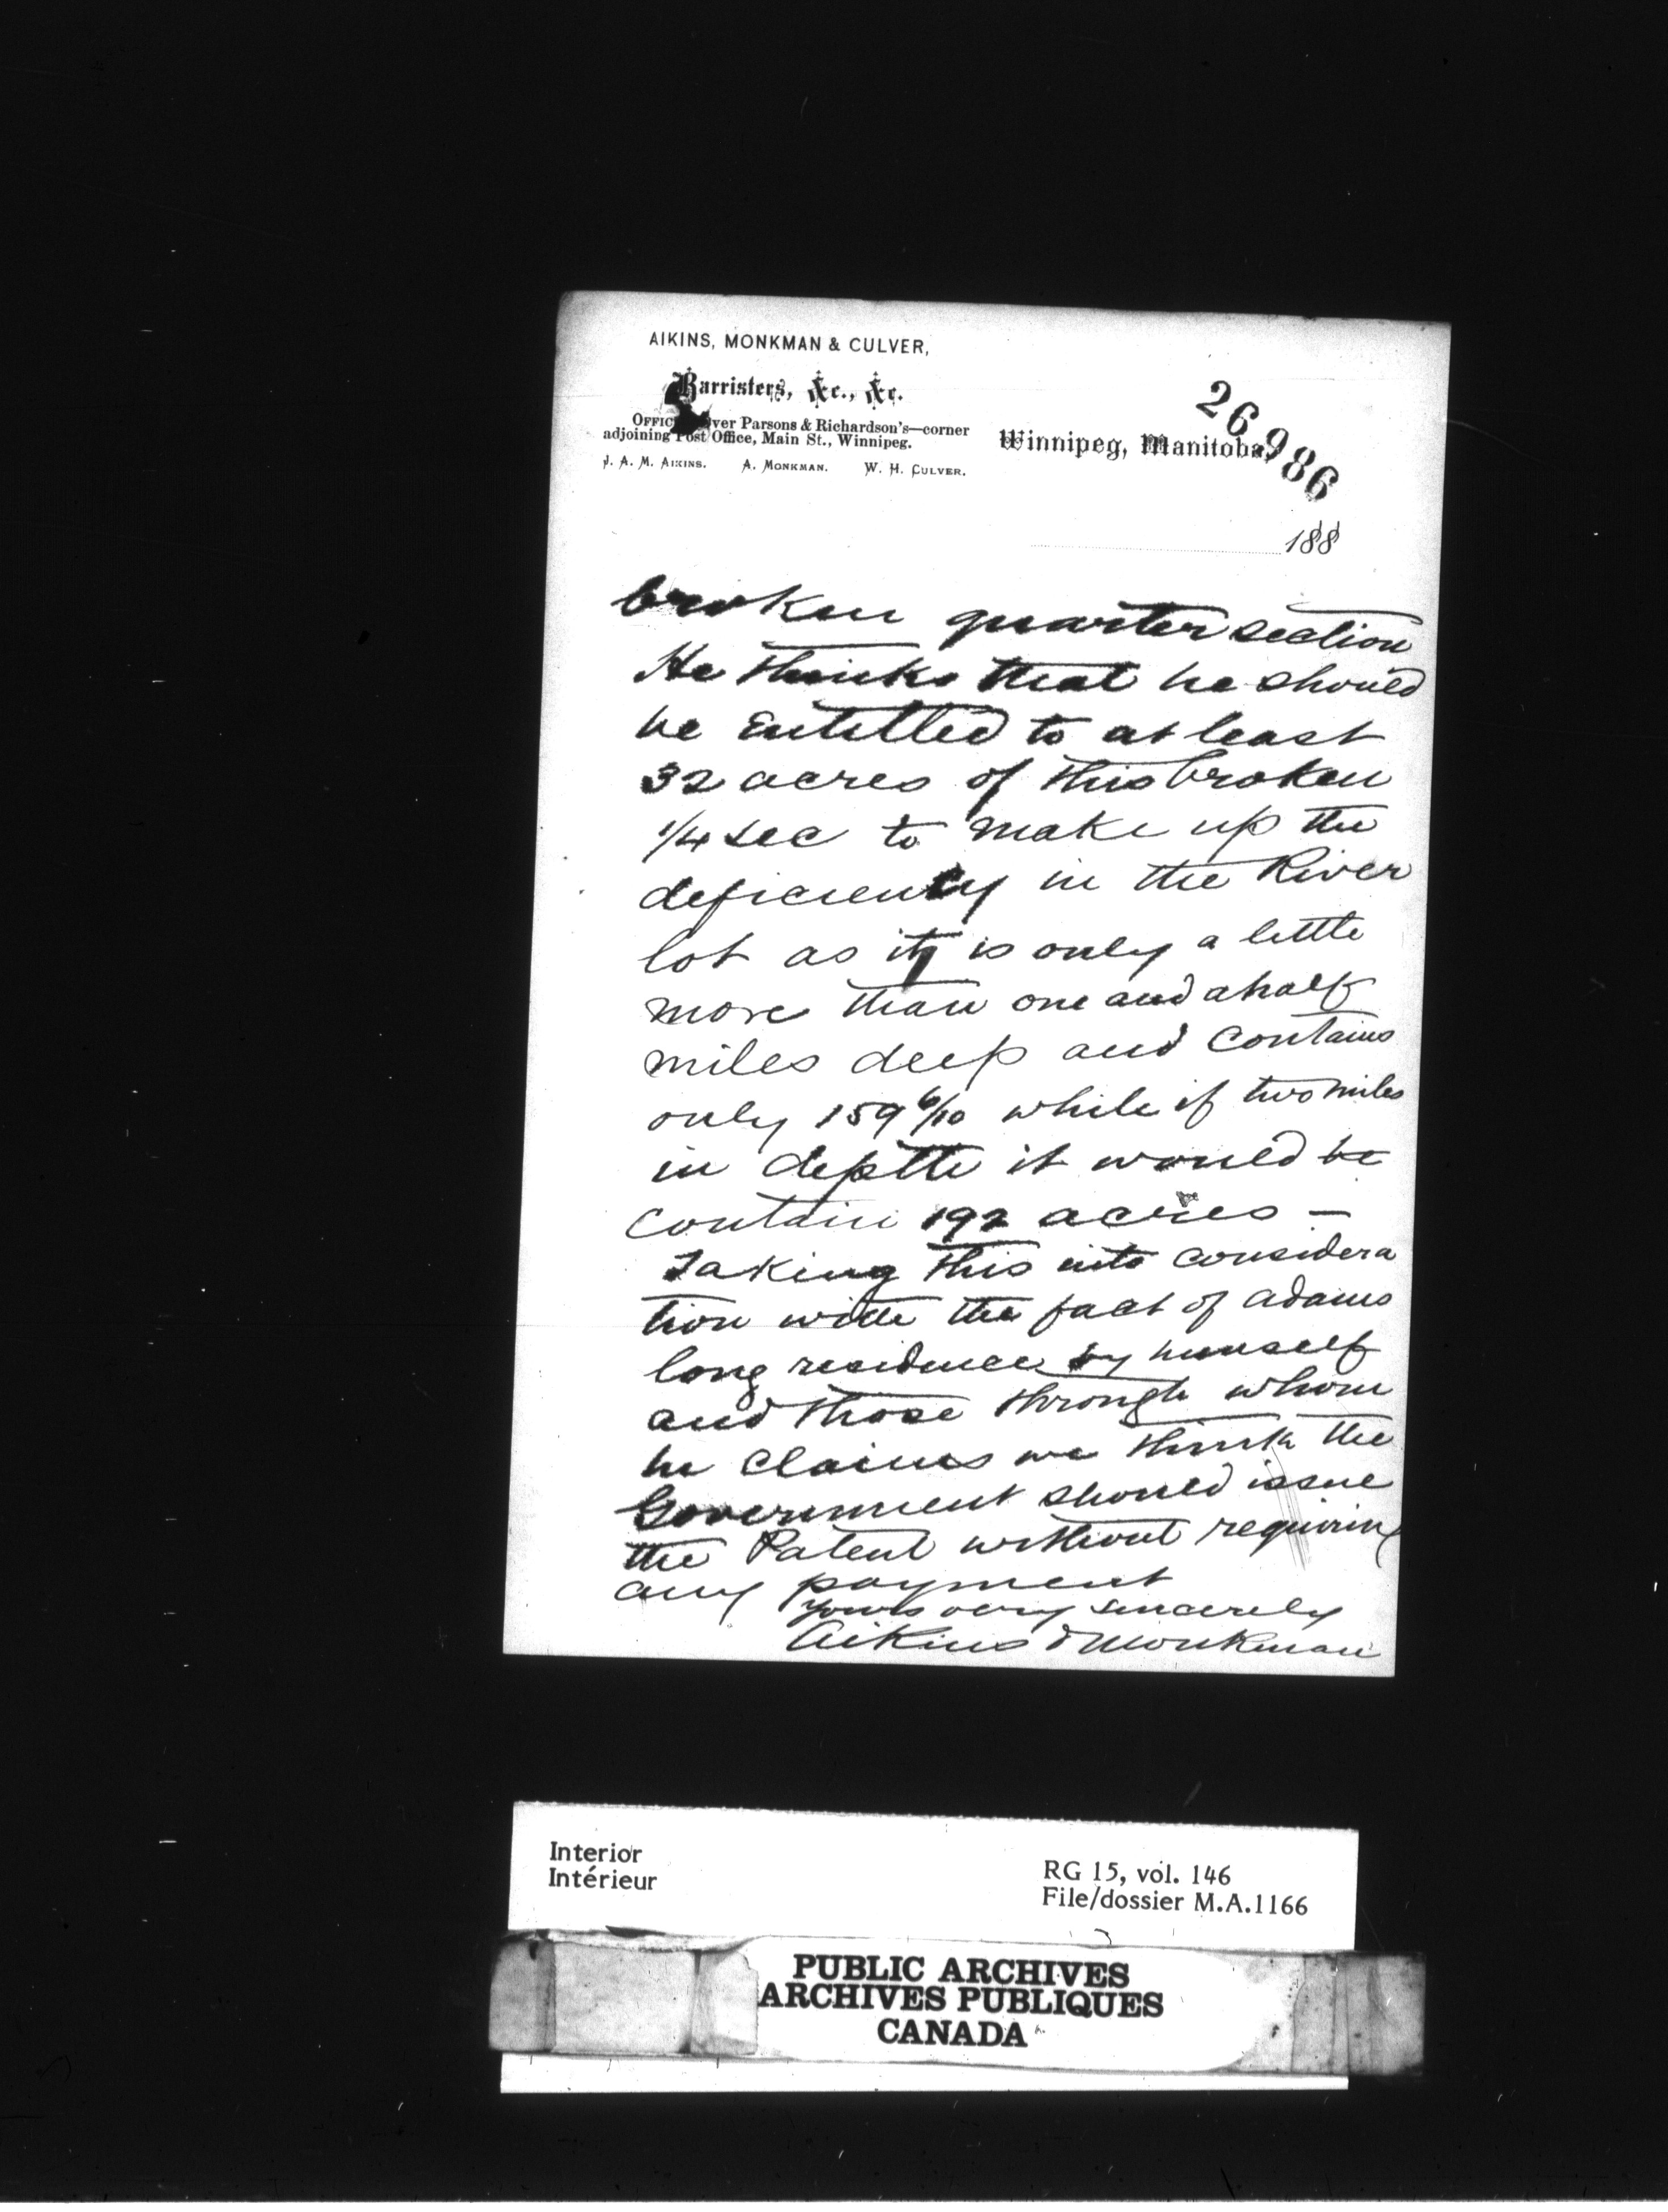 AIKINS, MONKMAN & CULVER,
Barristers, &c., &c.
OFFIC ver Parsons & Richardson's—corner
adjoining Post Office, Main St., Winnipeg.
J. A. M. AIKINS. A. MONKMAN. W. H. CULVER.
26986
Winnipeg, Manitoba,
188
broken quarter section
He thinks that he should
be Entitled to at least
32 acres of this broken
1/4 sec to make up the
deficiency in the River
lot as it is only a little
more than one and a half
miles deep and contains
only 159 6/10 while if two miles
in depth it would be
contain 192 acres —
Taking this into considera
tion with the fact of Adams
long residence by himself
and those through whom
he claims we think the
Government should issue
the Patent without requiring
any payment
Yours very sincerely
Aikins & Monkman
Interior
Intérieur
RG 15, vol. 146
File/dossier M.A.1166
PUBLIC ARCHIVES
ARCHIVES PUBLIQUES
CANADA